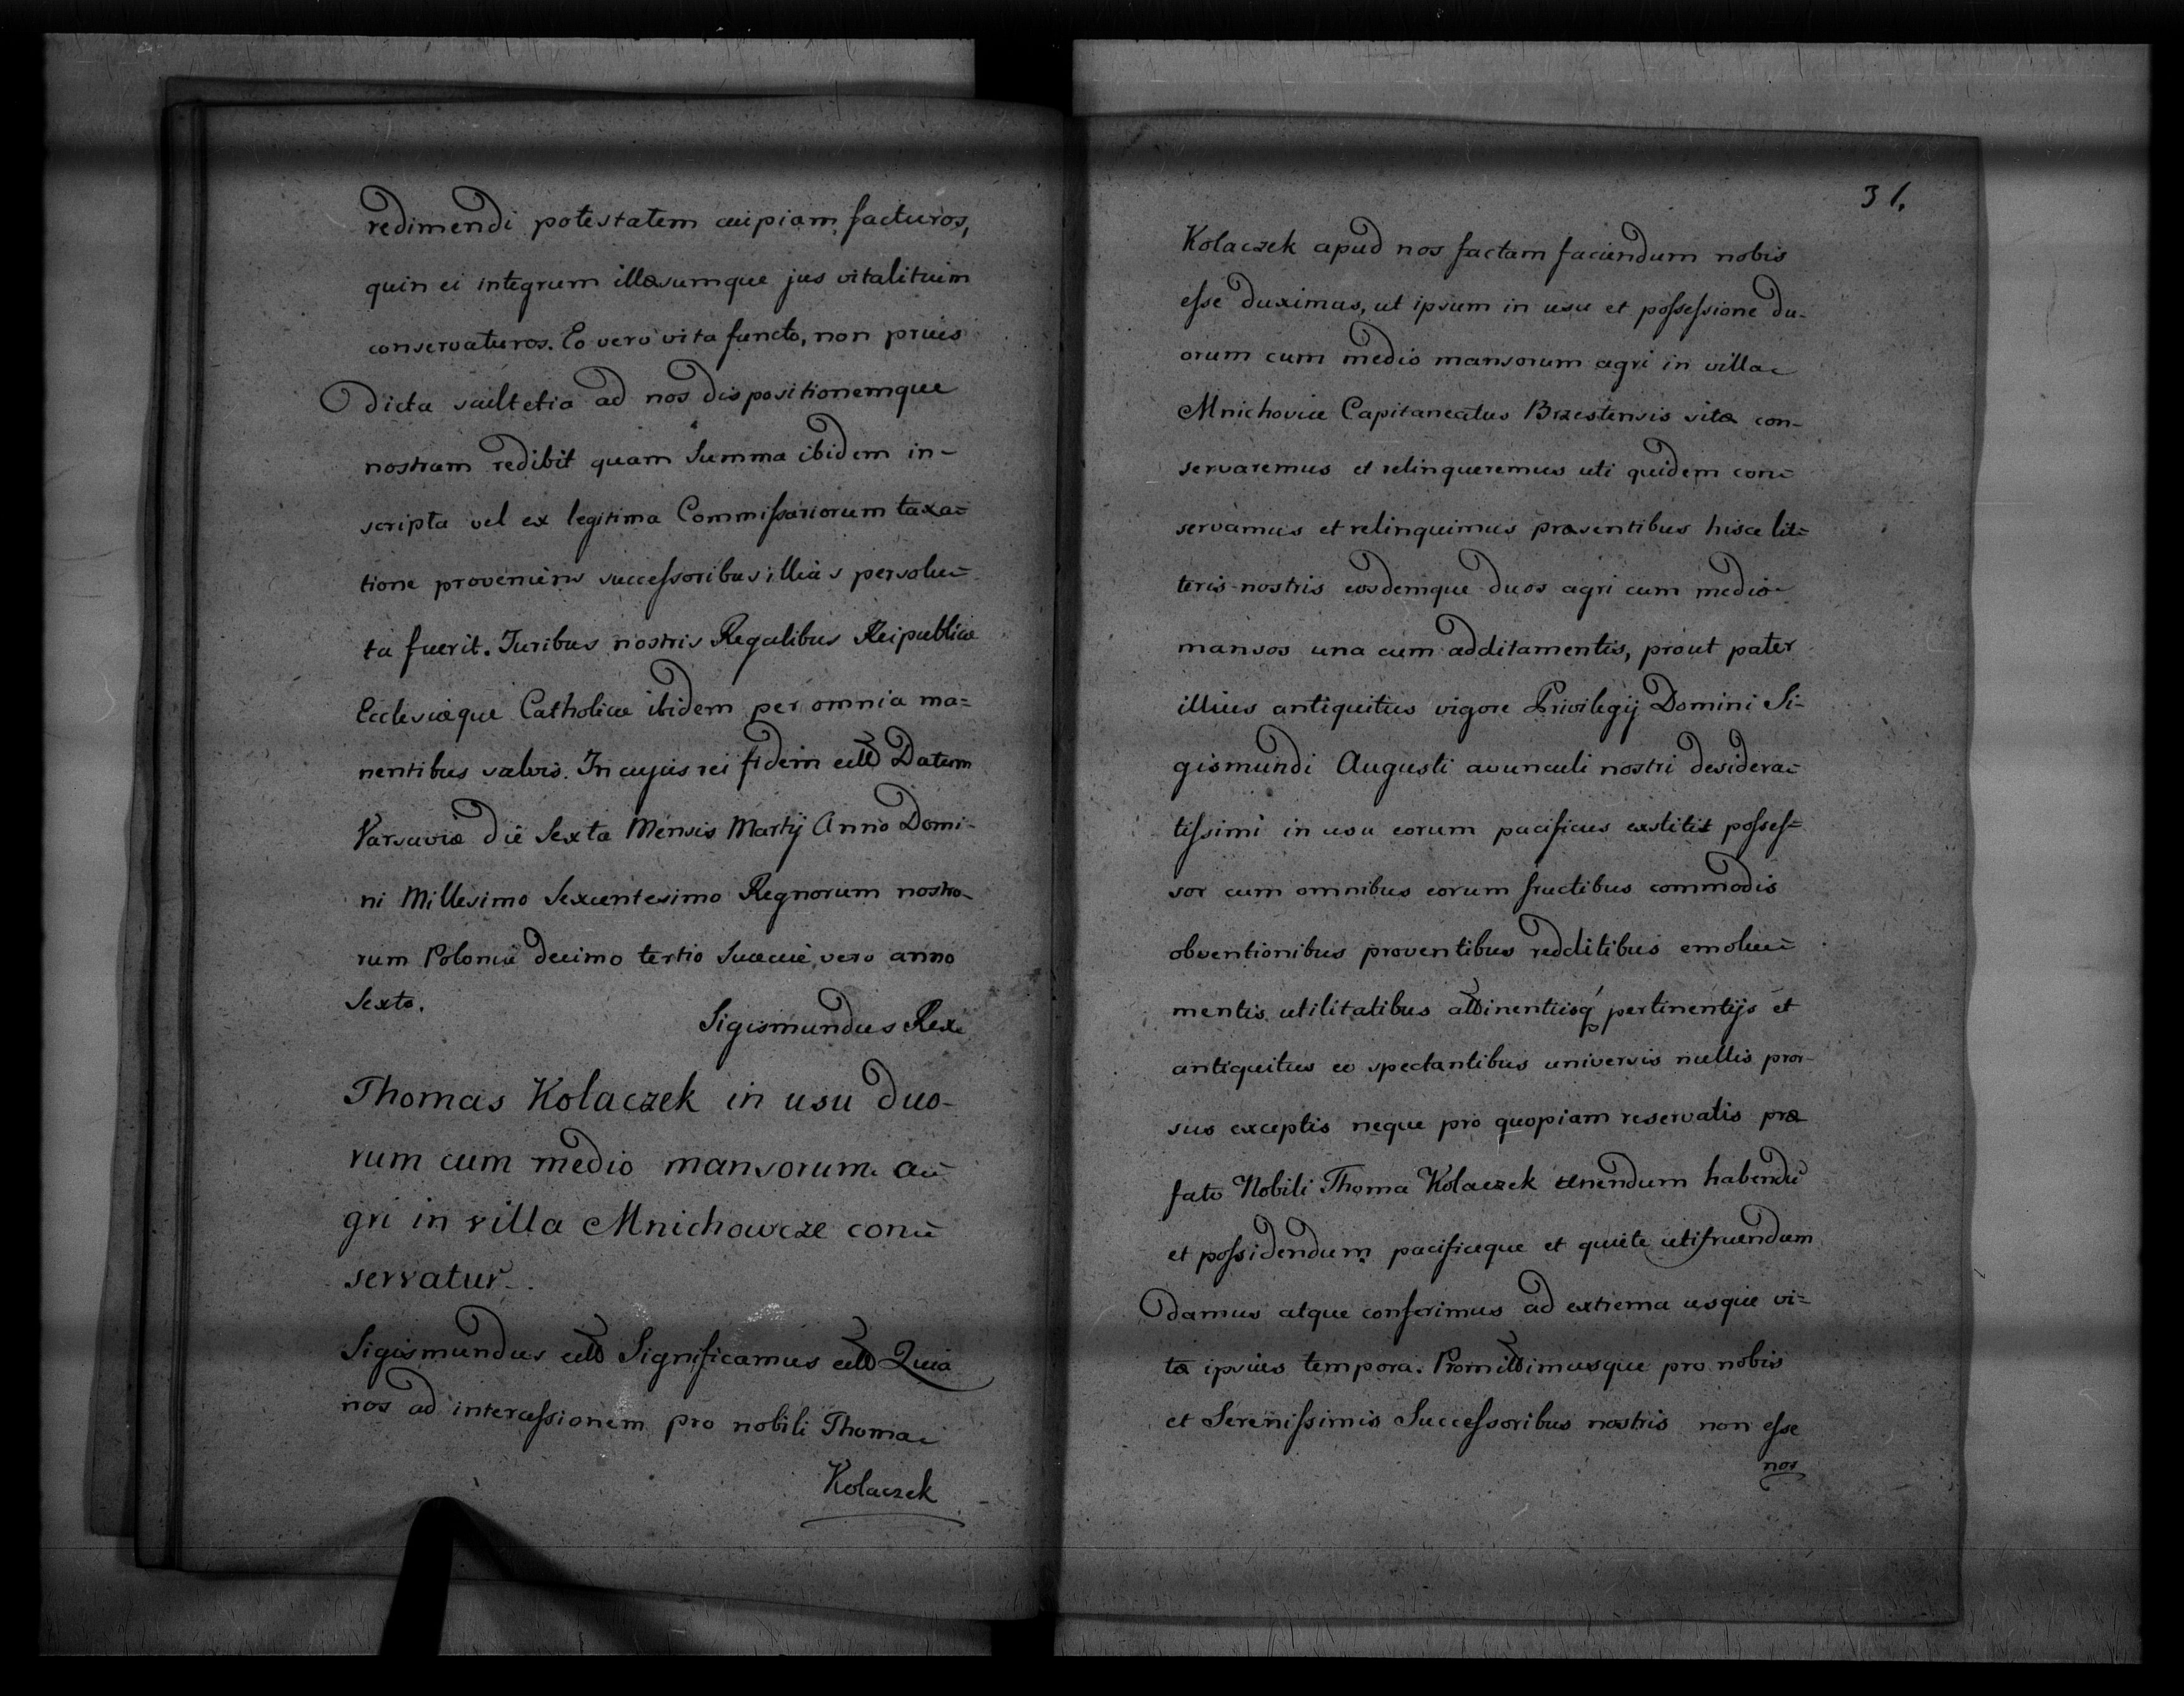 redimendi potestatem cuipiam facturos,
quin ei integrum illæsumque jus vitalituim
conservaturos. Eo vero vita functo, non prius
dicta scultetia ad nos dispositionemque
nostram redibit quam Summa ibidem in-
scripta vel ex legitima Commissariorum taxa=
tione proveniens successoribus illius persolu=
ta fuerit. Juribus nostris Regalibus Reipublicæ
Ecclesiæque Catholicæ ibidem per omnia ma=
nentibus salvis. In cujus rei fidem ett Datum
Varsaviæ die Sexta Mensis Martij Anno Domi-
ni Millesimo Sexcentesimo Regnorum nostro-
rum Poloniæ decimo tertio Sueciæ vero anno
Sexto.
Sigismundus Rex
Thomas Kolaczek in usu duo-
rum cum medio mansorum a=
gri in villa Mnichowcze con=
servatur.
Sigismundus ett Significamus ett Quia
nos ad intercessionem pro nobili Thoma
Kolaczek
31.
Kolaczek apud nos factam faciendum nobis
esse duximus, ut ipsum in usu et possessione du-
orum cum medio mansorum agri in villa
Mnichoviæ Capitaneatus Brzestensis sita con-
servaremus et relinqueremus uti quidem con=
servamus et relinquimus præsentibus hisce lit=
teris nostris eosdemque duos agri cum medio
mansos una cum additamentis, prout pater
illius antiquitus vigore Privilegij Domini Si-
gismundi Augusti avunculi nostri desidera=
tissimi in usu eorum pacificus exstitit posses=
sor cum omnibus eorum fructibus commodis
obventionibus proventibus redditibus emolu=
mentis utilitatibus attinentiisq pertinentijs et
antiquitus eo spectantibus universis nullis pror-
sus exceptis neque pro quopiam reservatis præ
fato Nobili Thoma Kolaczek tenendum habendū
et possidendum pacificeque et quiete utifruendum
damus atque conferimus ad extrema usque vi=
tæ ipsius tempora. Promittimusque pro nobis
et Serenissimis Successoribus nostris non esse
nos